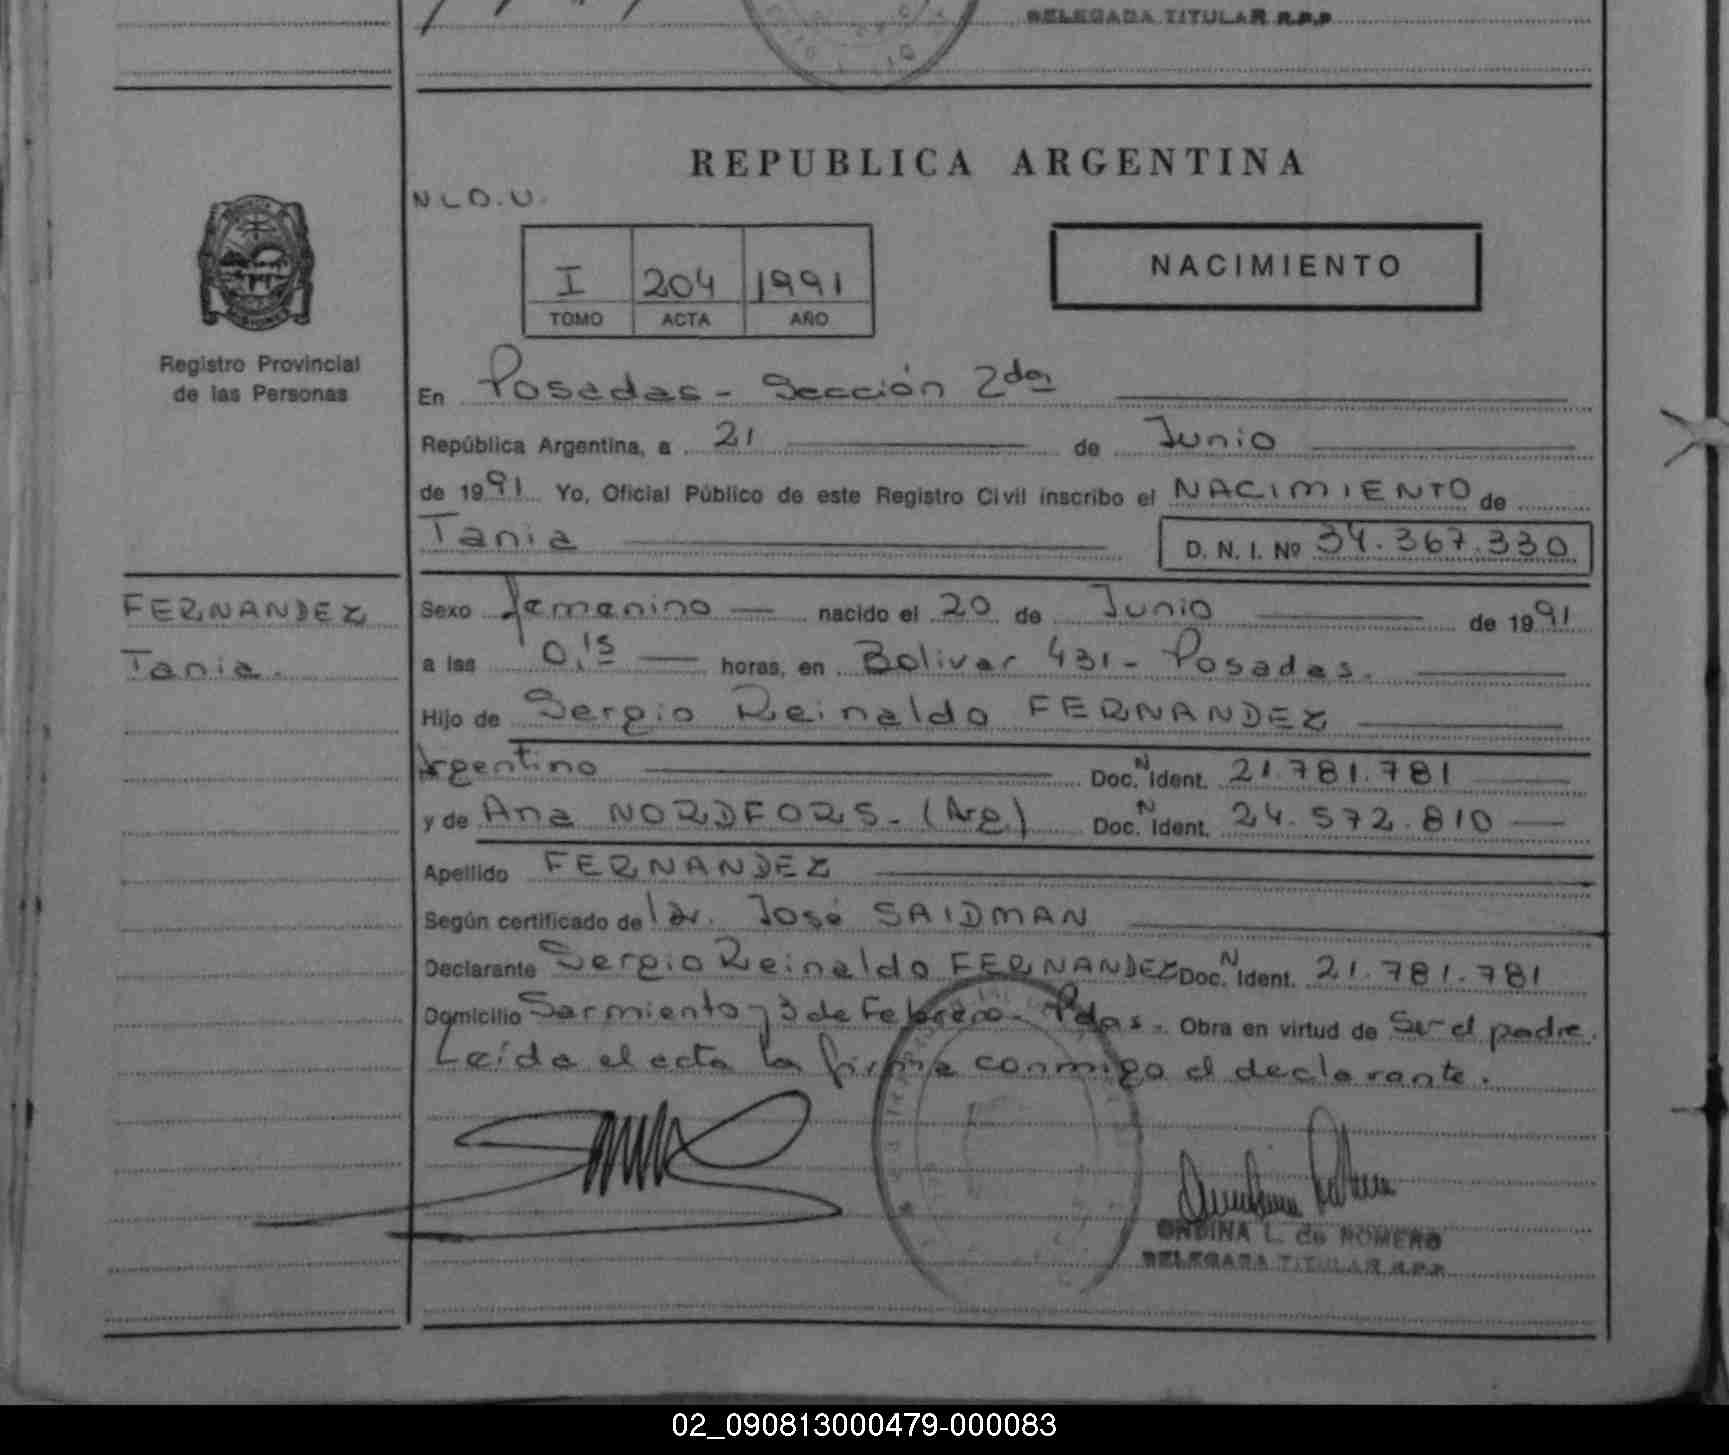 DELEGADA TITULAR R.P.P
REPUBLICA ARGENTINA
N L D. U.
I 204 1991
TOMO ACTA AÑO
NACIMIENTO
Registro Provincial
de las Personas
En Posadas - Sección 2da
República Argentina, a 21 de Junio
de 1991 Yo, Oficial Público de este Registro Civil inscribo el NACIMIENTO de
Tania D. N. I. Nº 34.367.330
FERNANDEZ
Tania.
Sexo femenino nacido el 20 de Junio de 1991
a las 0,15 horas, en Bolivar 431 - Posadas.
Hijo de Sergio Reinaldo FERNANDEZ
Argentino Doc. N Ident. 21.781.781
y de Ana NORDFORS - (Arg) Doc. N Ident. 24.572.810
Apellido FERNANDEZ
Según certificado de Dr. José SAIDMAN
Declarante Sergio Reinaldo FERNANDEZ Doc. N Ident. 21.781.781
Domicilio Sarmiento y 3 de Febrero - Pdas. Obra en virtud de Ser el padre.
Leída el acta la firma conmigo el declarante.
ONDINA L. de ROMERO
DELEGADA TITULAR R.P.P.
02_090813000479-000083